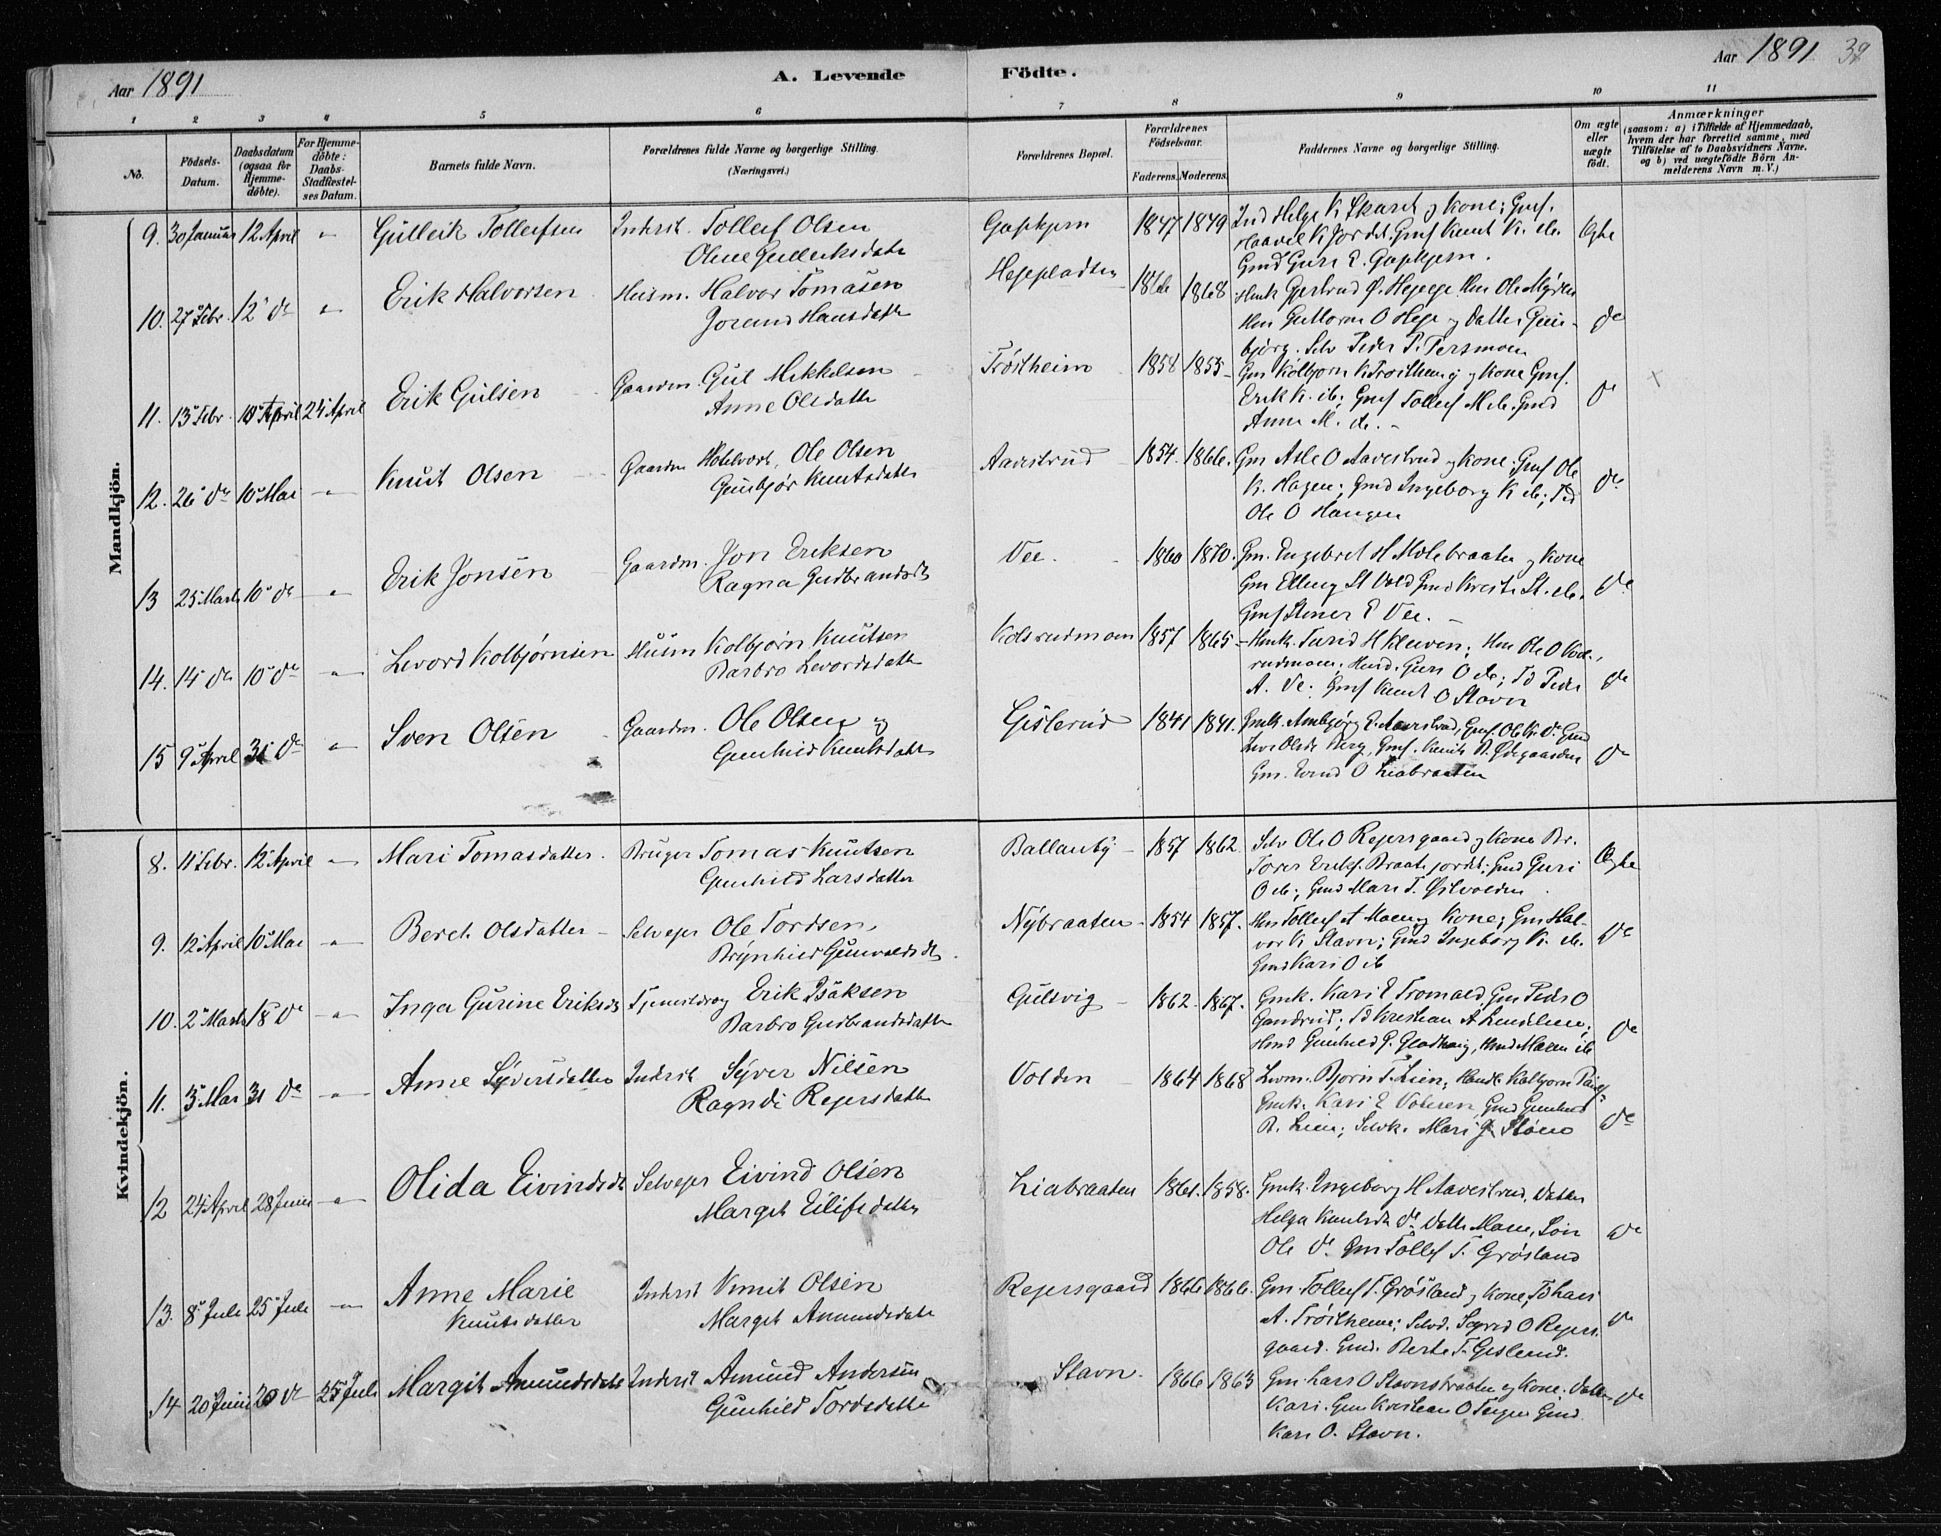 Aar 1891
A. Levende Födte.
Aar 1891 39
1 2 3 4 5 6 7 8 9 10 11
No.
Födsels-Datum.
Daabsdatum (ogsaa for Hjemme-döbte).
For Hjemme-döbte: Daabs-Stadfæstel-ses Datum.
Barnets fulde Navn.
Forældrenes fulde Navne og borgerlige Stilling.
(Næringsvei.)
Forældrenes Bopæl.
Forældrenes Födselsaar.
Faderens. Moderens.
Faddernes Navne og borgerlige Stilling.
Om ægte eller uægte födt.
Anmærkninger
(saasom: a) i Tilfælde af Hjemmedaab, hvem der har forrettet samme, med Tilföielse af to Daabsvidners Navne. og b) ved uægtefödte Börn An-melderens Navn m. V.)
Mandkjön.
9. 30 Januar 12 April " Gullerik Tollefsen Inderst. Tollef Olsen
Olene Gulleriksdatr
Gapkjern 1847 1849 Ind Helge K Skaret og Kone; Gmf.
Haavel K Jordet. Gmf Knut K. ib.
Gmd Guri E. Gapkjern.
Ægte
10. 27 Febr. 12 do " Erik Halvorsen Husm. Halvor Tomasen
Jorand Hansdatr
Hegepladsen 1868
og datter Gun-
björg. Selv Peder P. Persmoen
do
11. 13 Febr. 24 April Erik Gulsen Gaardm. Gul Mikkelsen
Anne Olsdatter
Trøstheim 1858 1855 Gm Kolbjørn K Trøstheim og Kone Gmf.
Erik K. ib; Gmf Tollef M ib. Gmd
Anne M. do.
do
12. 26 do 10 Mai " Knut Olsen Gaardm Hotelvert, Ole Olsen
Gunbjør Knutsdatter
Aavestrud 1854 1866. Gm Asle O Aavestrud og Kone; Gmf Ole
K. Hagen; Gmd Ingeborg K ib; Td
Ole O Haugen
do
13 25 Marts 10 do " Erik Jonsen Gaardm. Jon Eriksen
Ragna Gudbrandsdt
Vee. 1860 1870. Gm. Engebret H Molebraaten og Kone
Gm Elling St Vold Gmd St. ib.
Gmf Stener E Vee.
do
14. 14 do 10 do " Levord Kolbjørnsen Husm Kolbjørn Knutsen
Barbro Levordsdatter
Kolsrudmoen 1857 1865 Hmk. Turid H Kleiven; Hm Ole O Kols-
rudmoen. Hmd. Guri O ib; Td Peder
A. Ve. Gmf Knut O Stavn
do
15 9 April 31 do " Sven Olsen Gaardm. Ole Olsen og
Gunhild Knutsdatter
Gislerud 1841 1841. Gmk. Ambjørg E. Aavestrud, Gmf. Ole K. do Gmd
Berg, Gmf. Knut Ødegaarden
Gm. O Liabraaten
do
Kvindekjön.
8. 11 Febr. 12 April " Mari Tomasdatter. Bruger Tomas Knutsen
Gunhild Larsdatter
Ballanby 1857 1862. Selv Ole O Rejersgaard og Kone Br.
Torer Eriks. Braatejordet; Gmd Guri
O ib; Gmd Mari T. Østvolden.
Ægte
9. 12 April 10 Mai " Beret Olsdatter Selvejer Ole Tordsen,
Brynhild Gunvaldsdt.
Nybraaten 1854 1857. Hm Tollef A Moen og Kone; Gm Hal-
vor K Stavn; Gmd Ingeborg K. ib.
Gmd Kari O ib
do
10. 2 Marts 18 do " Inga Gurine Eriksdt Tjenestdreng Erik Isaksen
Barbro Gudbrandsdatter
Gulsvig 1862. 1867. Gmk. Kari E Tromald, Gm Peder O
Gandrud; Td Kristian A
Hmd Gunhild P. Hmd Maren ib
do
11. 3 Mai 31 do " Anne Syversdatter Inderst Syver Nilsen
Ragndi Rejersdatter
Volden 1864 1868 Bjørn T. Lien;
Gmk. Kari E Gmd Gunhild
B. Lien; Selvk. Mari
do
12 24 April 28 Juni " Olida Eivindsdt Selvejer Eivind Olsen
Margit Eilifsdatter
Liabraaten 1861. 1858. Gmk. Ingeborg H Aavestrud, Datter
Helga Knutsdt do Datter Maren, Søn
Ole do. Gm Tollef T. Grøsland
do
13. 8 Juli 25 Juli " Anne Marie
Knutsdatter
Inderst Knut Olsen
Margit Amundsdatr
Rejersgaard 1866 1866. Gm Tollef T. Grøsland og Kone,
A. Trøstheim; Selvd. Sigrid O Rejers-
gaard. Gmd. Berte T.
do
14 20 Juni 25 Juli Margit Amundsdatr Inderst Amund Andersen
Gunhild Tordsdatter
Stavn. 1866 1863 Gm Lars O Stavnsbraaten og Kone. Datter
Kari. Gm Kristian O Gmd.
Kari O. Stavn.
do